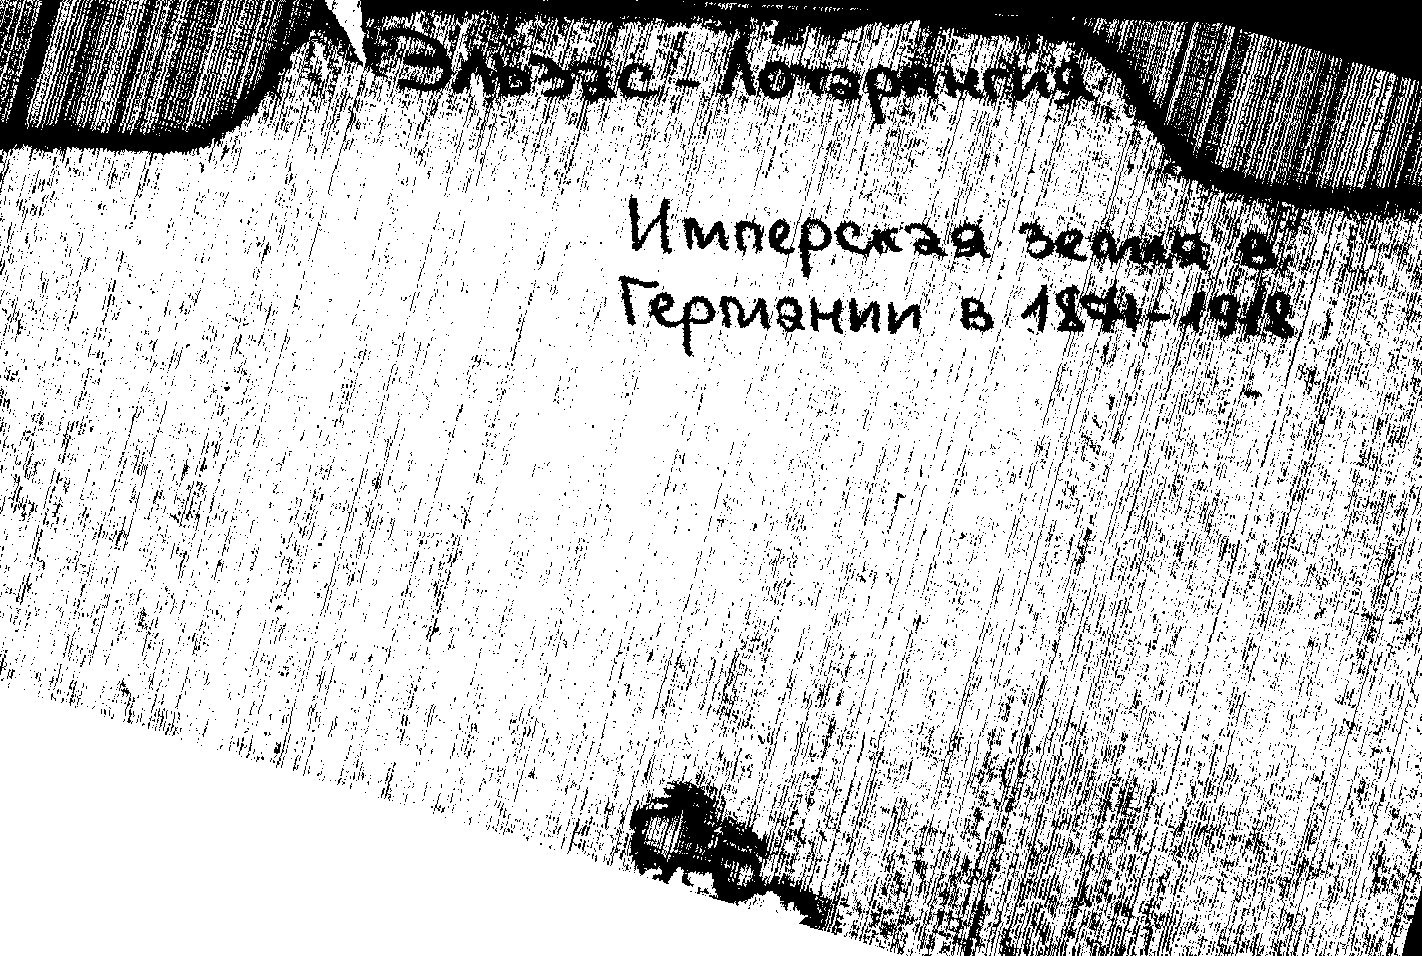 Эльзас - Лотарингия
Имперская земля в
Германии в 1871-1918